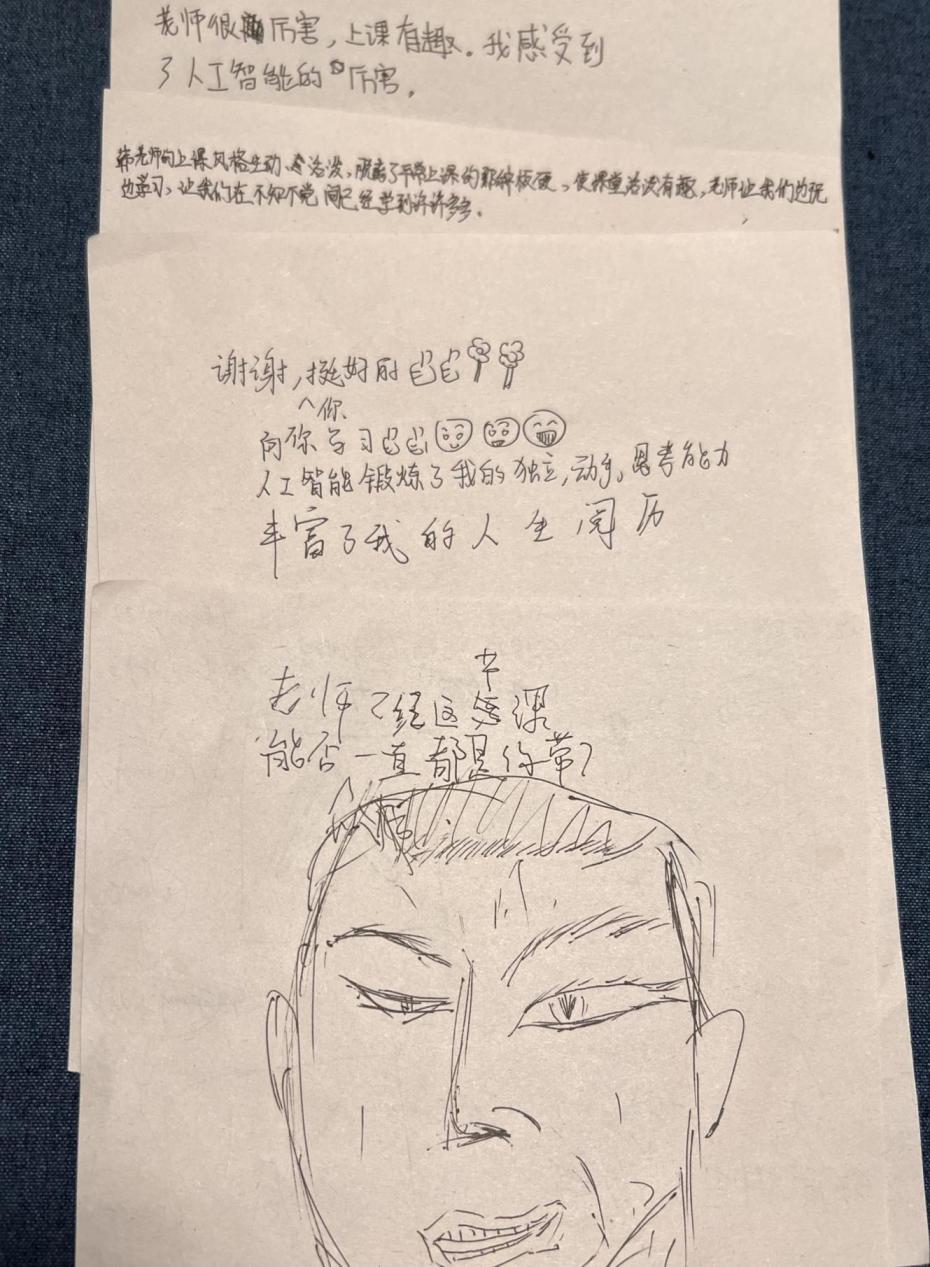 老师很厉害，上课有趣。我感受到
了人工智能的厉害。
韩老师的上课风格生动、活泼，脱离了平常上课的那种板硬，使课堂活泼有趣，老师让我们边玩
边学习，让我们在不知不觉间已经学到许许多多。
谢谢你，挺好的
向你学习
人工智能锻炼了我的独立，动手，思考能力
丰富了我的人生阅历
老师已经这节课
能否一直都是你带？